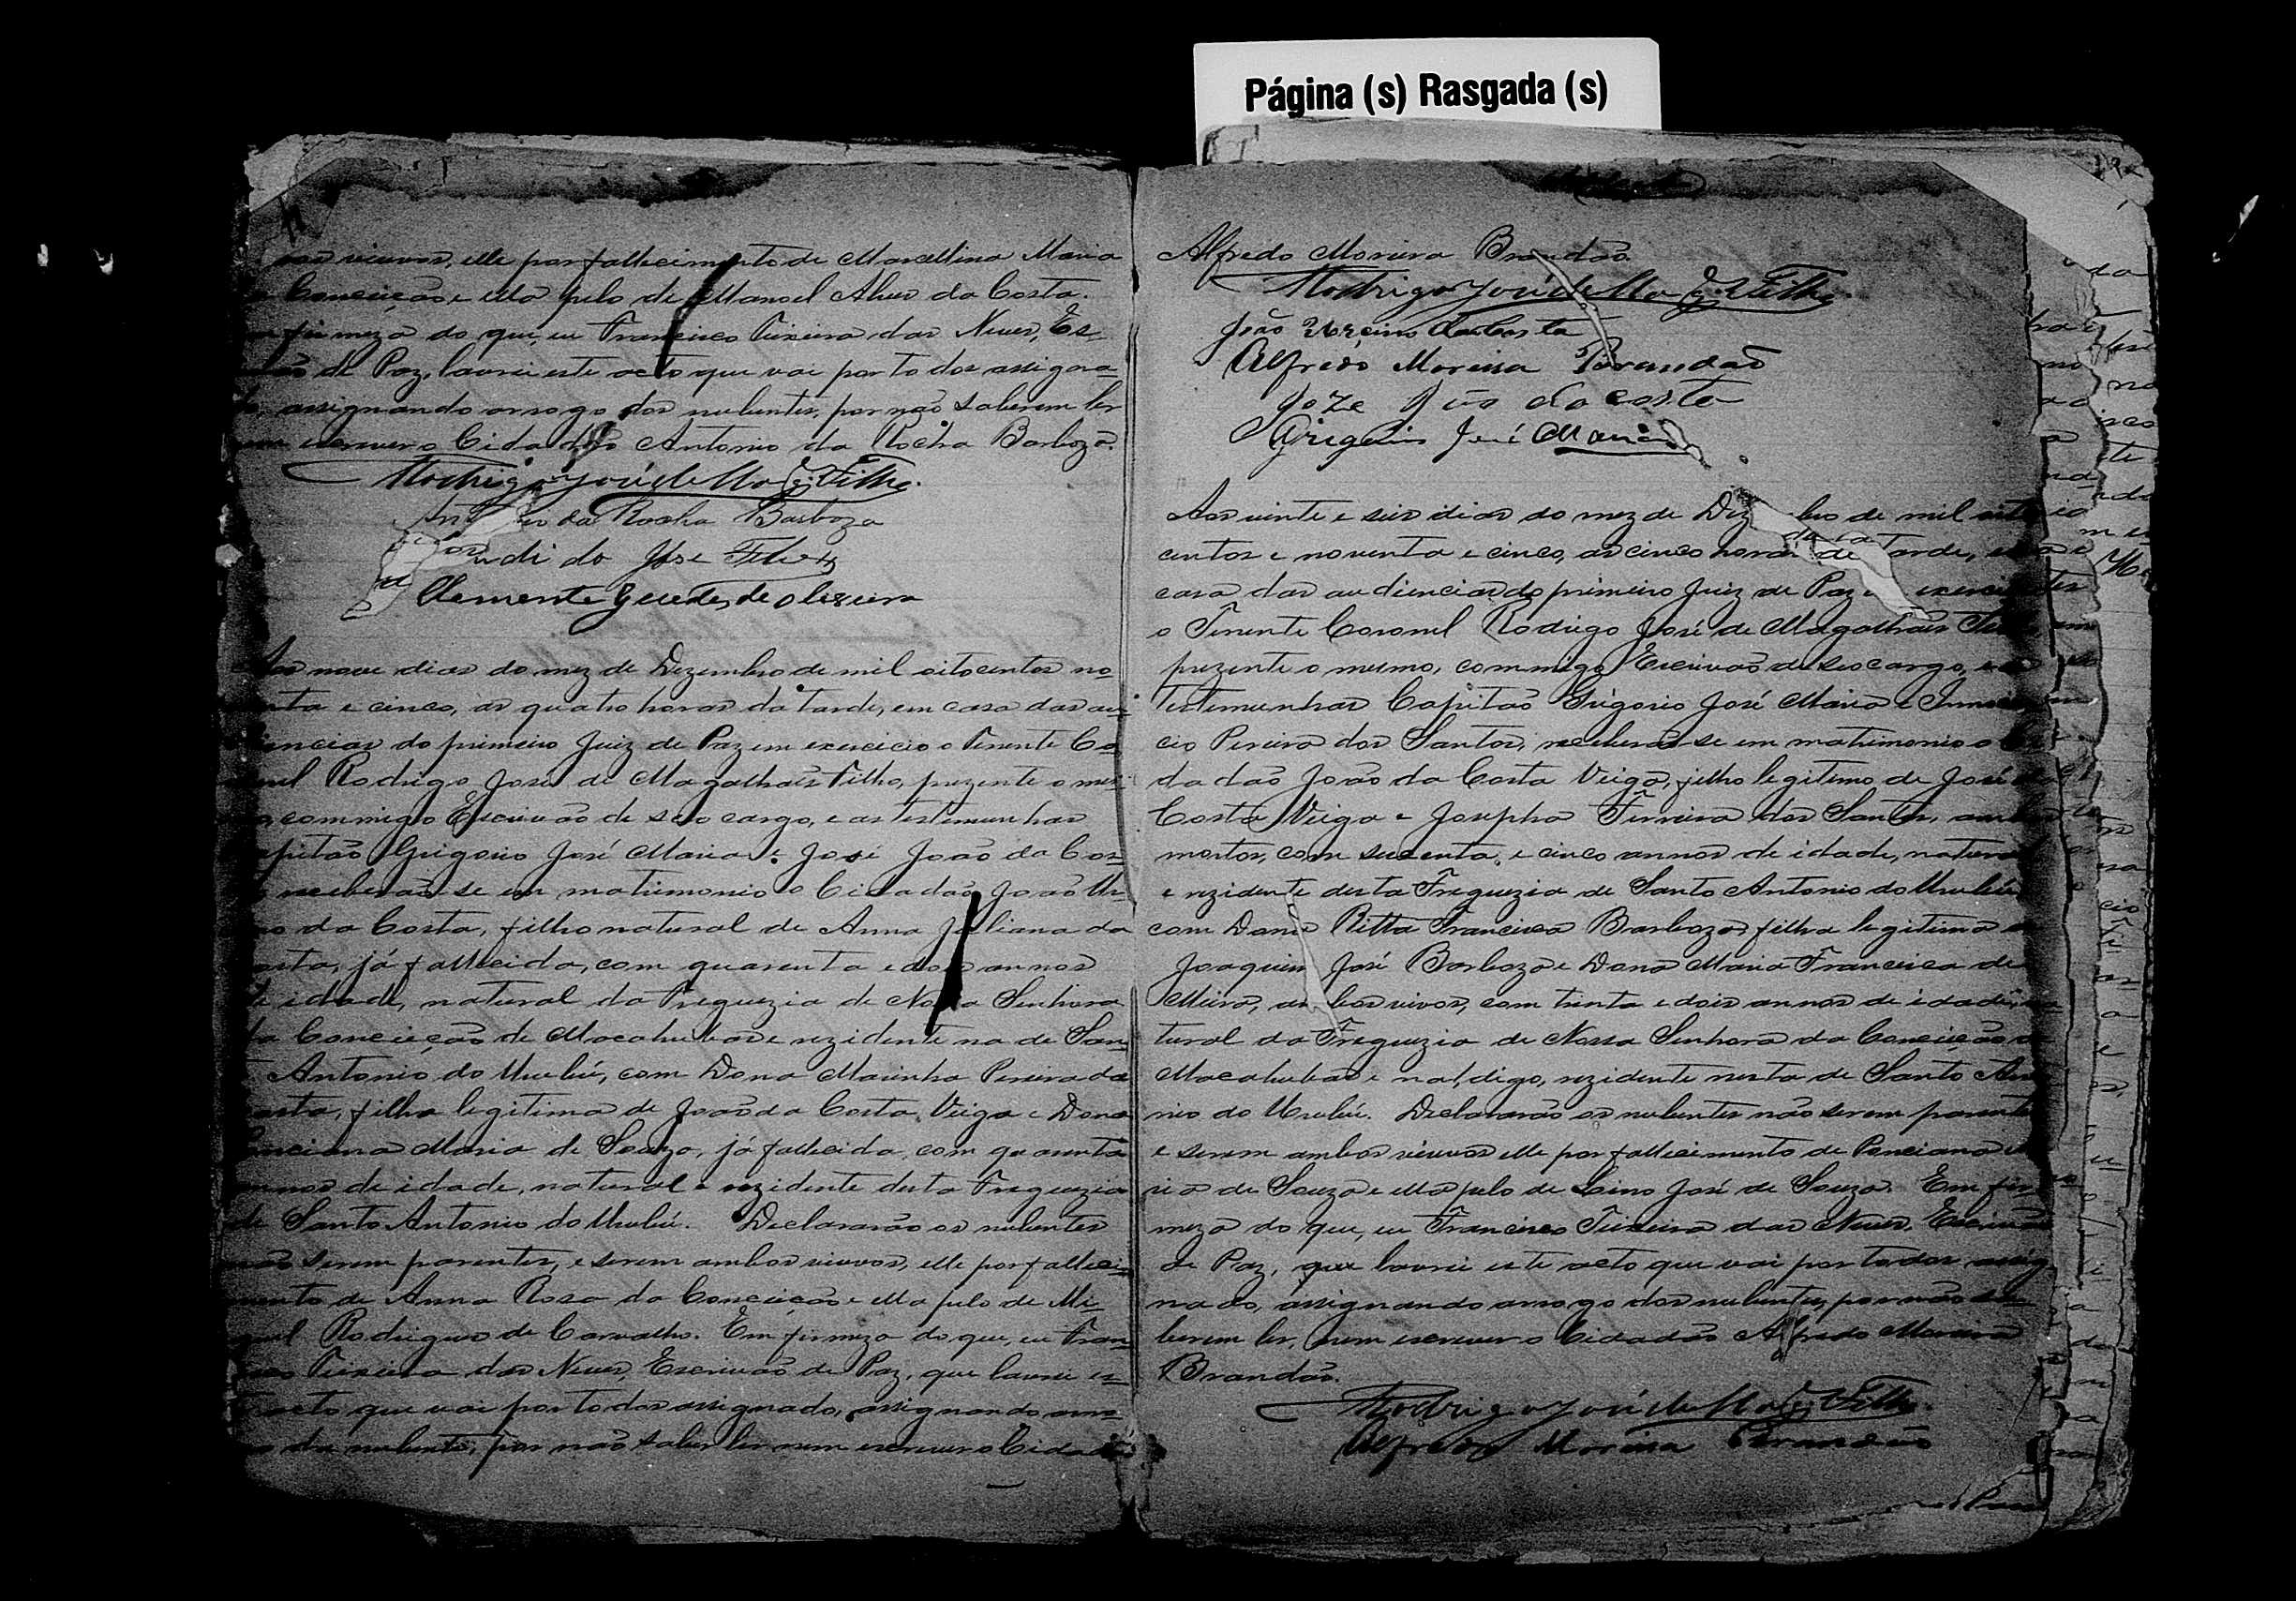 Página (s) Rasgada (s)
viuvos, elle por fallecimento de Marcellina Maria
Conceição e ella pelo de Manoel Alves da Costa.
firmeza do que, eu Francisco Teixeira das Neves, Es-
de Paz, lavrei este acto que vai por todos assigna-
assignando arrogo dos nubentes, por não saberem ler
escrever o Cidadão Antonio da Rocha Barboza.
Rodrigo José de Mag. Filho.
da Rocha Barboza
di do Jose
Clemente Guedes de oliveira
Aos nove dias do mez de Dezembro de mil oitocentos no-
enta e cinco, as quatro horas da tarde, em casa das au-
diencias do primeiro Juiz de Paz em exercicio o Tenente Co-
ronel Rodrigo José de Magalhães Filho, prezente o mes-
commigo Escrivão de seo cargo, e as testemunhas
Capitão Grigorio José Maria e José João da Cos-
receberão-se em matrimonio o Cidadão João Ur-
da Costa, filho natural de Anna Juliana da
Costa, já fallecida, com quarenta e dois annos
de idade, natural da Freguezia de Nossa Senhora
da Conceição de Macahubas e rezidente na de San-
Antonio do Urubú, com Dona Marinha Pereira da
Costa, filha legitima de João da Costa Veiga e Dona
Ponciana Maria de Souza, já fallecida, com quarenta
annos de idade, natural e rezidente desta Freguezia
de Santo Antonio do Urubú. Declararão os nubentes
não serem parentes, e serem ambos viuvos, elle por falleci-
mento de Anna Rosa da Conceição e ella pelo de Mi-
guel Rodrigues de Carvalho. Em firmeza do que, eu Fran-
cisco Teixeira das Neves, Escrivão de Paz, que lavrei es-
acto que vai por todos assignado, assignando arro-
da nubente, por não saber ler nem escrever o Cida
Alfredo Moreira Brandão.
Rodrigo José de Mag. Filho.
João da Costa
Alfredo Moreira Brandaõ
Joze da costa
Grigorio José Maria
Aos vinte e seis dias do mez de Dezembro de mil oito
centos e noventa e cinco, as cinco horas da tarde,
casa das audiencias do primeiro Juiz de Paz
o Tenente Coronel Rodrigo José de Magalhães
prezente o mesmo, commigo Escrivão de seo cargo,
testemunhas Capitão Grigorio José Maria e Innocen
cio Pereira dos Santos, receberão-se em matrimonio o
dadão João da Costa Veiga, filho legitimo de José
Costa Veiga e Josepha Ferreira dos Santos,
mortos, com e cinco annos de idade, natural
e rezidente desta Freguezia de Santo Antonio do Urubú
com Dona Ritta Francisca Barboza, filha legitima
Joaquim José Barboza e Dona Maria Francisca de
ambos vivos, com trinta e dois annos de idade,
tural da Freguezia de Nossa Senhora da Conceição
Macahubas e na, digo, rezidente nesta de Santo
nio do Urubú. Declararão os nubentes não serem parentes
e serem ambos viuvos elle por fallecimento de Ponciana
ria de Souza e ella pelo de Lino José de Souza. Em fir
meza do que, eu Francisco Teixeira das Neves, Escrivão
de Paz, que lavrei este acto que vai por todos assig
nado, assignando arrogo dos nubentes, por não sa-
berem ler, nem escrever o Cidadão Alfredo Moreira
Brandão.
Rodrigo José de Mag. Filho.
Alfredo Moreira Brandão